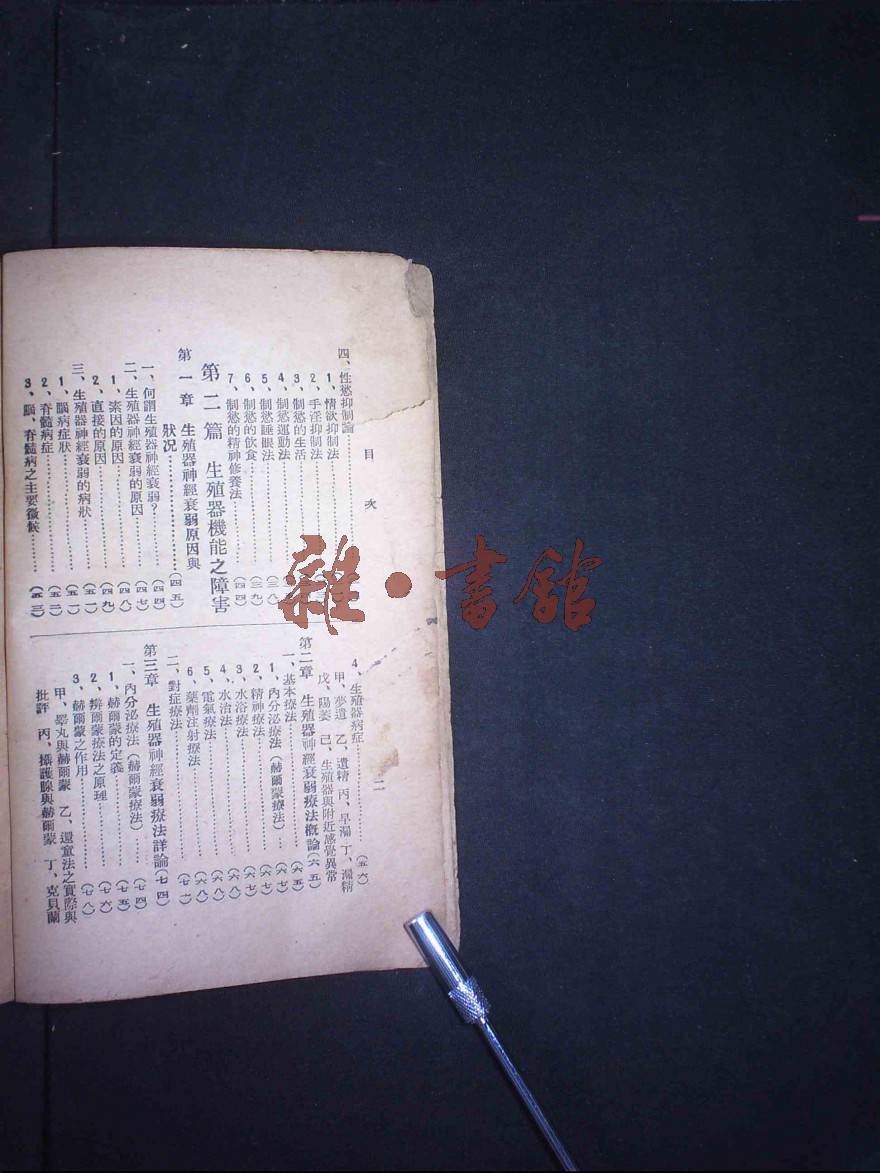 目次
二
四、性慾抑制論
1、情欲抑制法
2、手淫抑制法
3、制慾的生活
4、制慾運動法
5、制慾睡眠法
6、制慾的飲食
7、制慾的精神修養法(四四)
第二篇 生殖器機能之障害
第一章 生殖器神經衰弱原因與
狀況(四五)
一、何謂生殖器神經衰弱?(四四)
二、生殖器神經衰弱的原因(四八)
1、素因的原因(四七)
2、直接的原因(四九)
三、生殖器神經衰弱的病狀(五一)
1、腦病症狀(五一)
2、脊髓病症(五二)
3、腦、脊髓病之主要徵候
4、生殖器病症(五六)
甲、夢遺 乙、遺精 丙、早漏 丁、漏精
戊、陽萎 己、生殖器與附近感覺異常
第二章 生殖器神經衰弱療法概論(六五)
一、基本療法(六五)
1、內分泌療法(赫爾蒙療法)(六七)
2、精神療法(六七)
3、水浴療法(六八)
4、水治法(六八)
5、電氣療法(六八)
6、藥劑注射療法(六八)
二、對症療法(七一)
第三章 生殖器神經衰弱療法詳論(七四)
一、內分泌療法(赫爾蒙療法)(七四)
1、赫爾蒙的定義(七五)
2、辨爾蒙療法之原理(七六)
3、赫爾蒙之作用(七八)
甲、睪丸與赫爾蒙 乙、還宜法之實際與
批評 丙、攝護腺與赫爾蒙 丁、克貝蘭
雜·書館